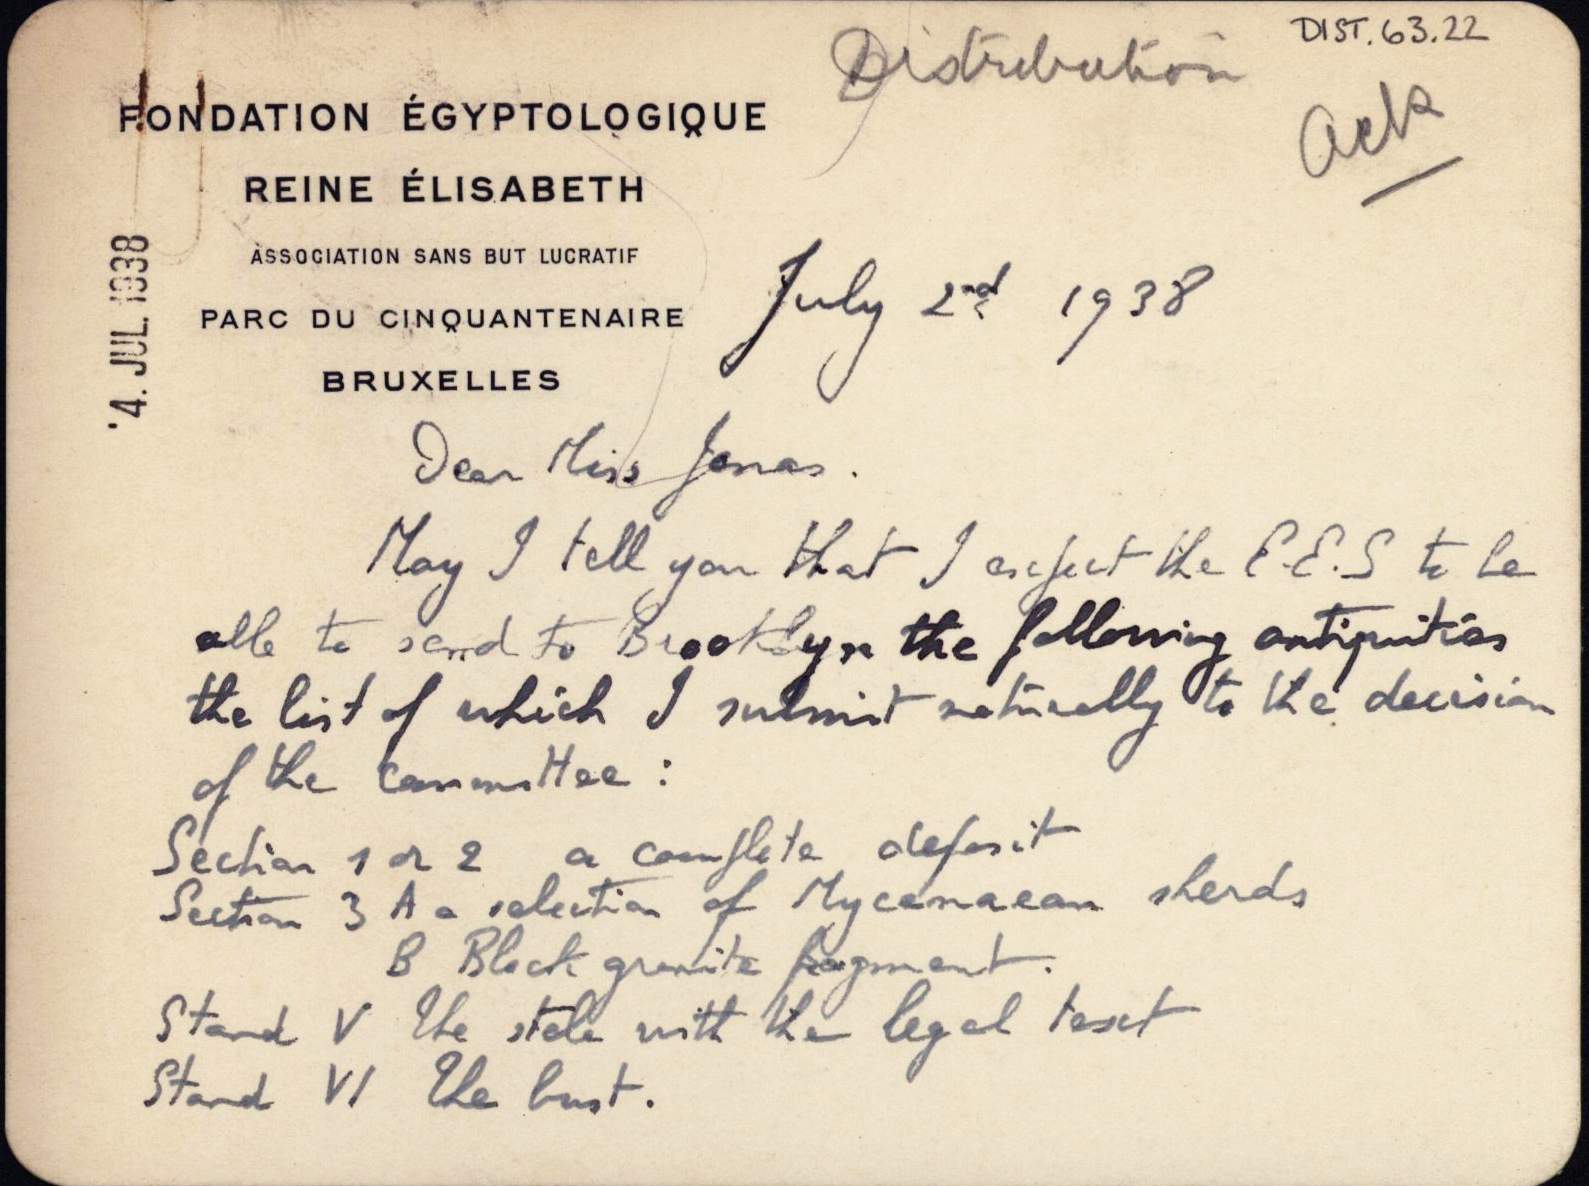 DIST.63.22
Distribution
Ack
FONDATION ÉGYPTOLOGIQUE
REINE ÉLISABETH
ASSOCIATION SANS BUT LUCRATIF
PARC DU CINQUANTENAIRE
BRUXELLES
4. JUL. 1938
July 2nd 1938
Dear Miss Jonas.
May I tell you that I expect the E.E.S to be
able to send to Brooklyn the following antiquities
the list of which I submit naturally to the decision
of the Committee :
Section 1 or 2 a complete deposit
Section 3 A a selection of Mycenaean sherds
B Black granite fragment.
Stand V The stele with the legal text
Stand VI The bust.